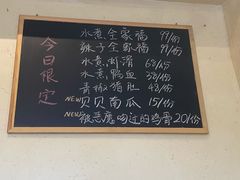 今日限定
水煮全家福 99/份
辣子全家福 99/份
水煮刺滑 68/份
水煮鸭血 38/份
青椒猪肚 48/份
NEW 贝贝南瓜 15/份
NEW 被恶魔吻过的鸡骨 20/份